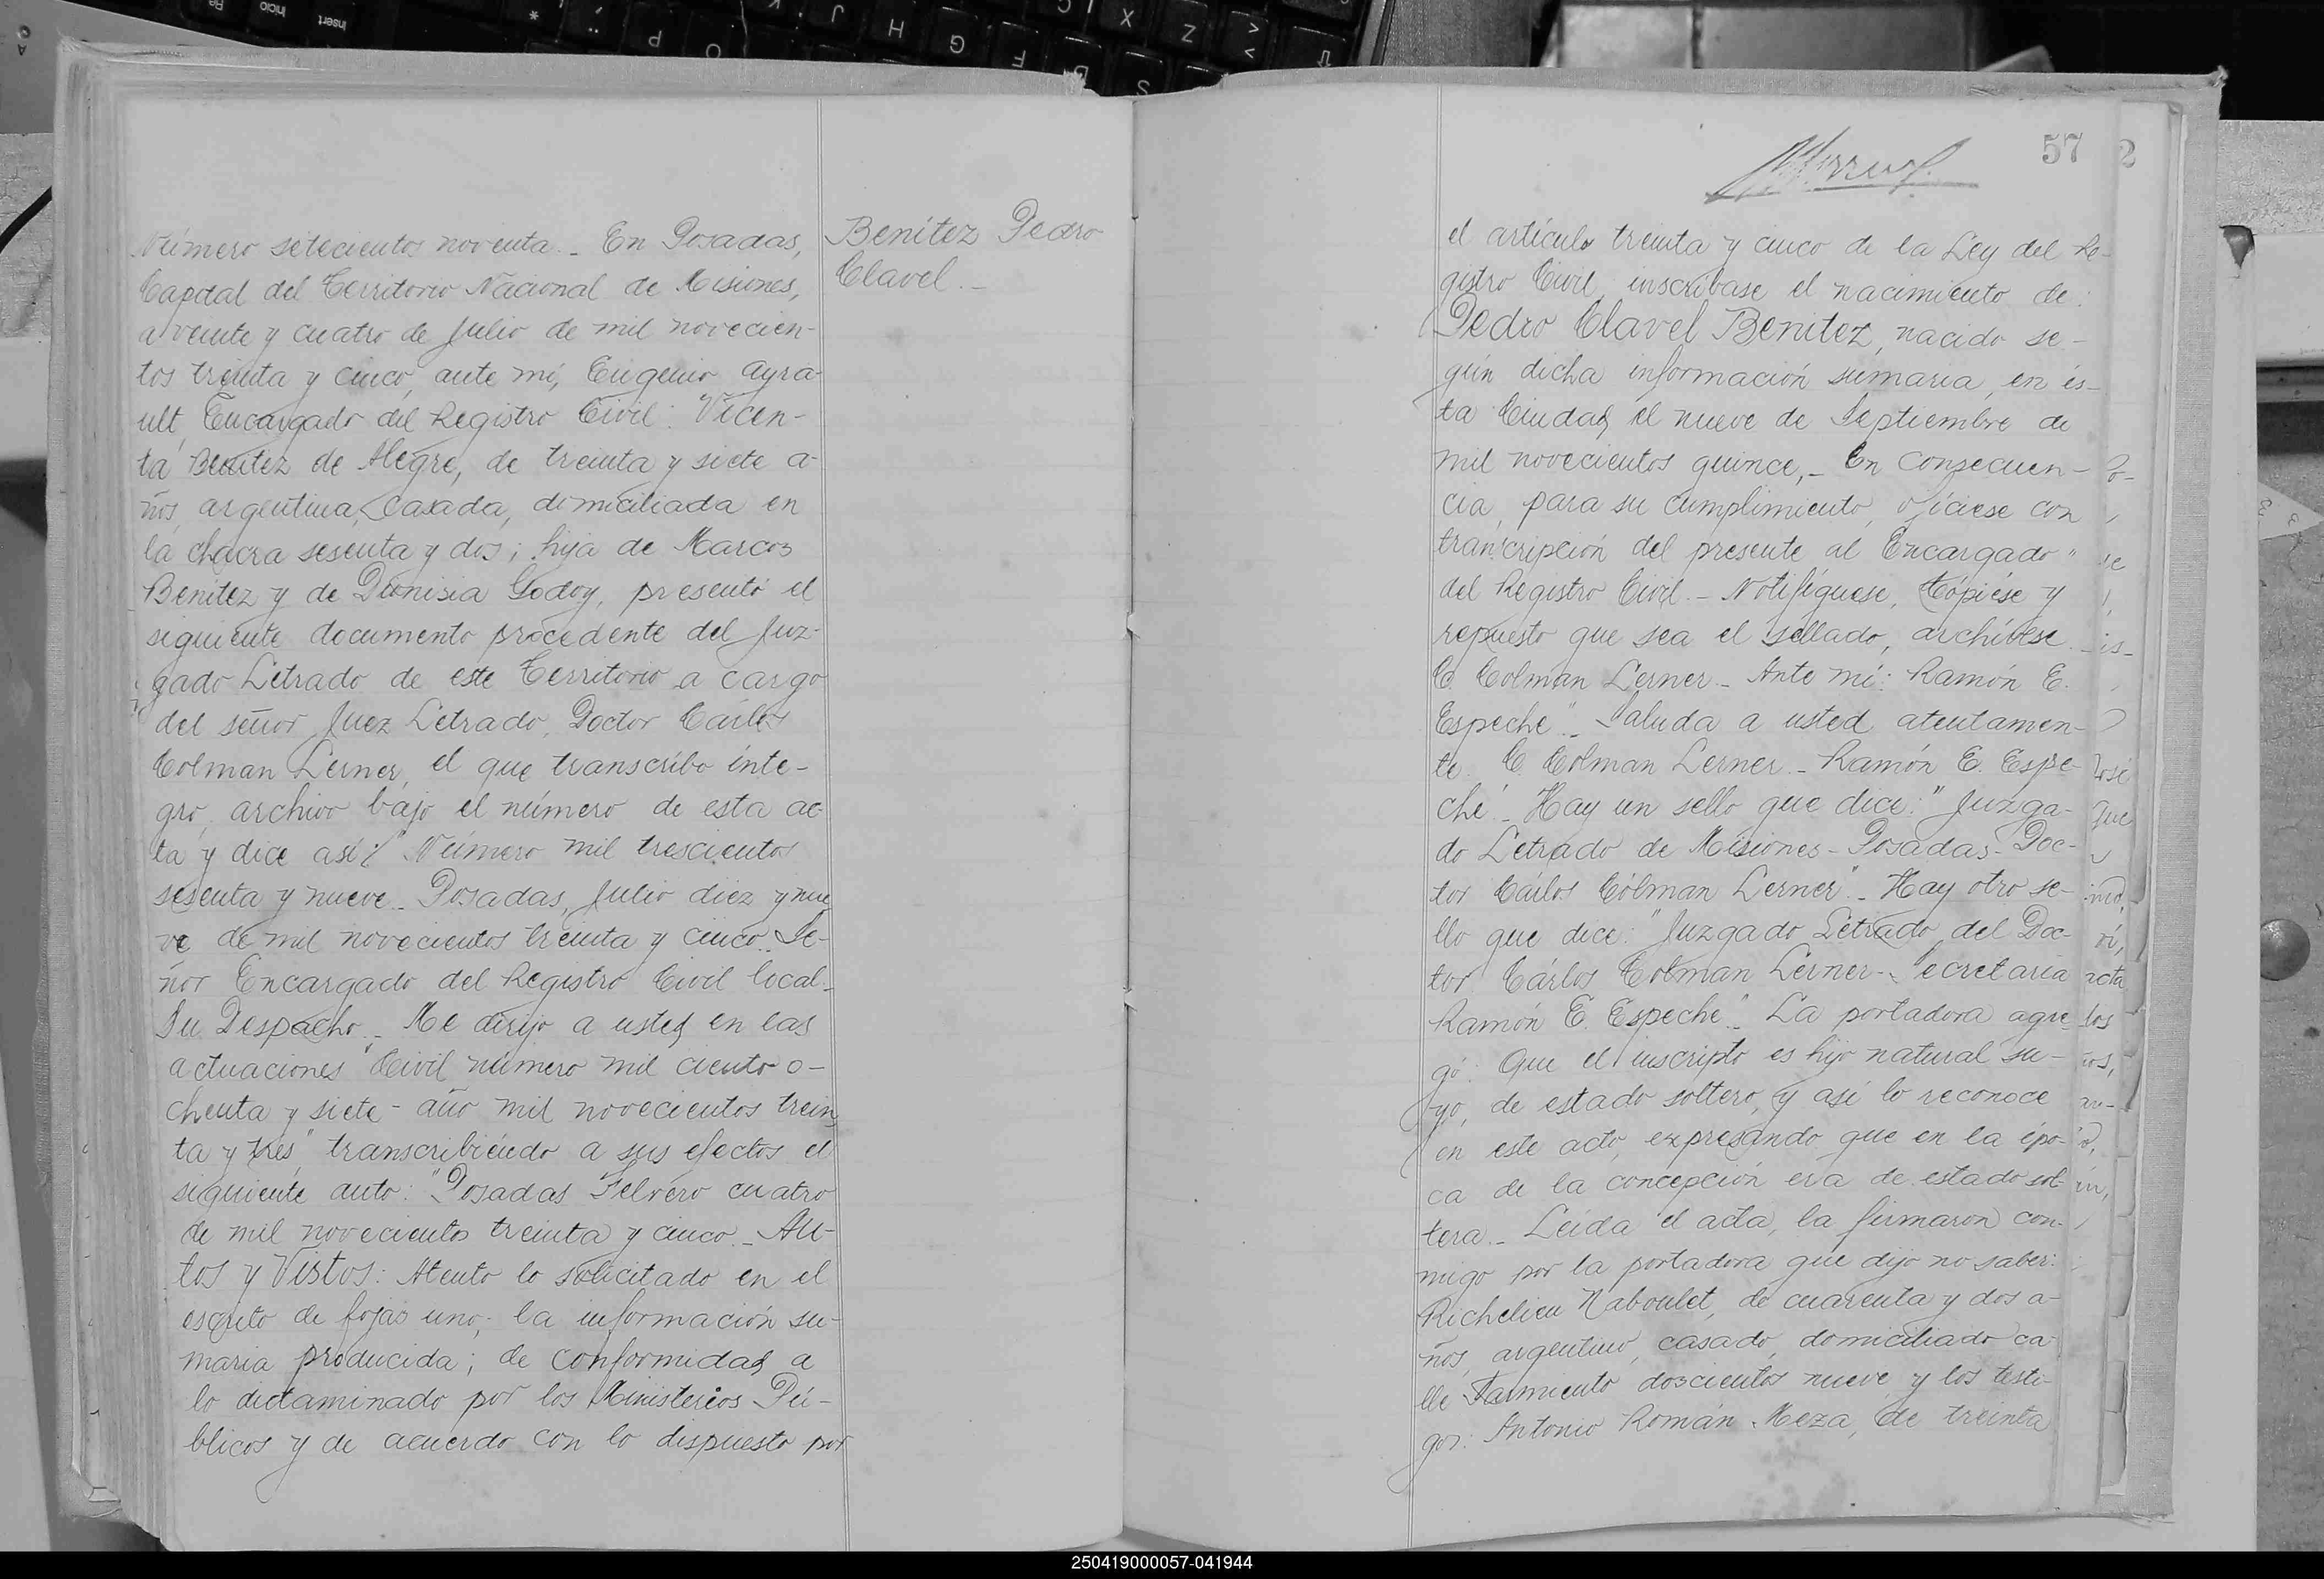 Número setecientos noventa._ En Posadas,
Capital del Territorio Nacional de Misiones,
a veinte y cuatro de Julio de mil novecien-
tos treinta y cinco, ante mí, Eugenio Ayra-
ult, Encargado del Registro Civil: Vicen-
ta Benítez de Alegre, de treinta y siete a-
ños, argentina, casada, domiciliada en
la chacra sesenta y dos; hija de Marcos
Benítez y de Dionisia Godoy, presentó el
siguiente documento procedente del Juz-
gado Letrado de este Territorio a cargo
del señor Juez Letrado, Doctor Cárlos
Colman Lerner, el que transcribo ínte-
gro, archivo bajo el número de esta ac-
ta y dice así: "Número mil trescientos
sesenta y nueve_ Posadas, Julio diez y nue
ve de mil novecientos treinta y cinco._ Se-
ñor Encargado del Registro Civil local._
Su Despacho._ Me dirijo a usted en las
actuaciones "Civil número mil ciento o-
chenta y siete - año mil novecientos trein
ta y tres" transcribiendo a sus efectos el
siguiente auto: "Posadas Febrero cuatro
de mil novecientos treinta y cinco._ Au-
tos y Vistos: Atento lo solicitado en el
escrito de fojas uno; la información su-
maria producida; de conformidad a
lo dictaminado por los Ministerios Pú-
blicos y de acuerdo con lo dispuesto por
Benítez Pedro
Clavel._
57
2
el artículo treinta y cinco de la Ley del Re-
gistro Civil, inscríbase el nacimiento de:
Pedro Clavel Benitez, nacido se-
gún dicha información sumaria, en és-
ta Ciudad, el nueve de Septiembre de
mil novecientos quince,_ En consecuen-
cia, para su cumplimiento, ofíciese con
trancripción del presente al Encargado
del Registro Civil._ Notifíquese, Cópiése y
repuesto que sea el sellado, archívese._
C. Colman Lerner_ Ante mí: Ramón E.
Espeche"._ Saluda a usted atentamen-
te. C. Colman Lerner._ Ramón E. Espe-
che"._ Hay un sello que dice: "Juzga-
do Letrado de Misiones - Posadas - Doc-
tor Cárlos Cólman Lerner"._ Hay otro se-
llo que dice: "Juzgado Letrado del Doc-
tor Cárlos Colman Lerner - Secretaría
Ramón E. Espeche"._ La portadora agre
gó: Que el inscripto es hijo natural su-
yo, de estado soltero, y así lo reconoce
en este acto, expresando que en la épo-
ca de la concepción era de estado sol-
tera._ Leída el acta, la firmaron con-
migo por la portadora que dijo no saber:
Richelieu Naboulet, de cuarenta y dos a-
ños, argentino, casado, domiciliado ca
lle Sarmiento doscientos nueve y los testi-
gos: Antonio Román Meza, de treinta
acta
los
250419000057-041944